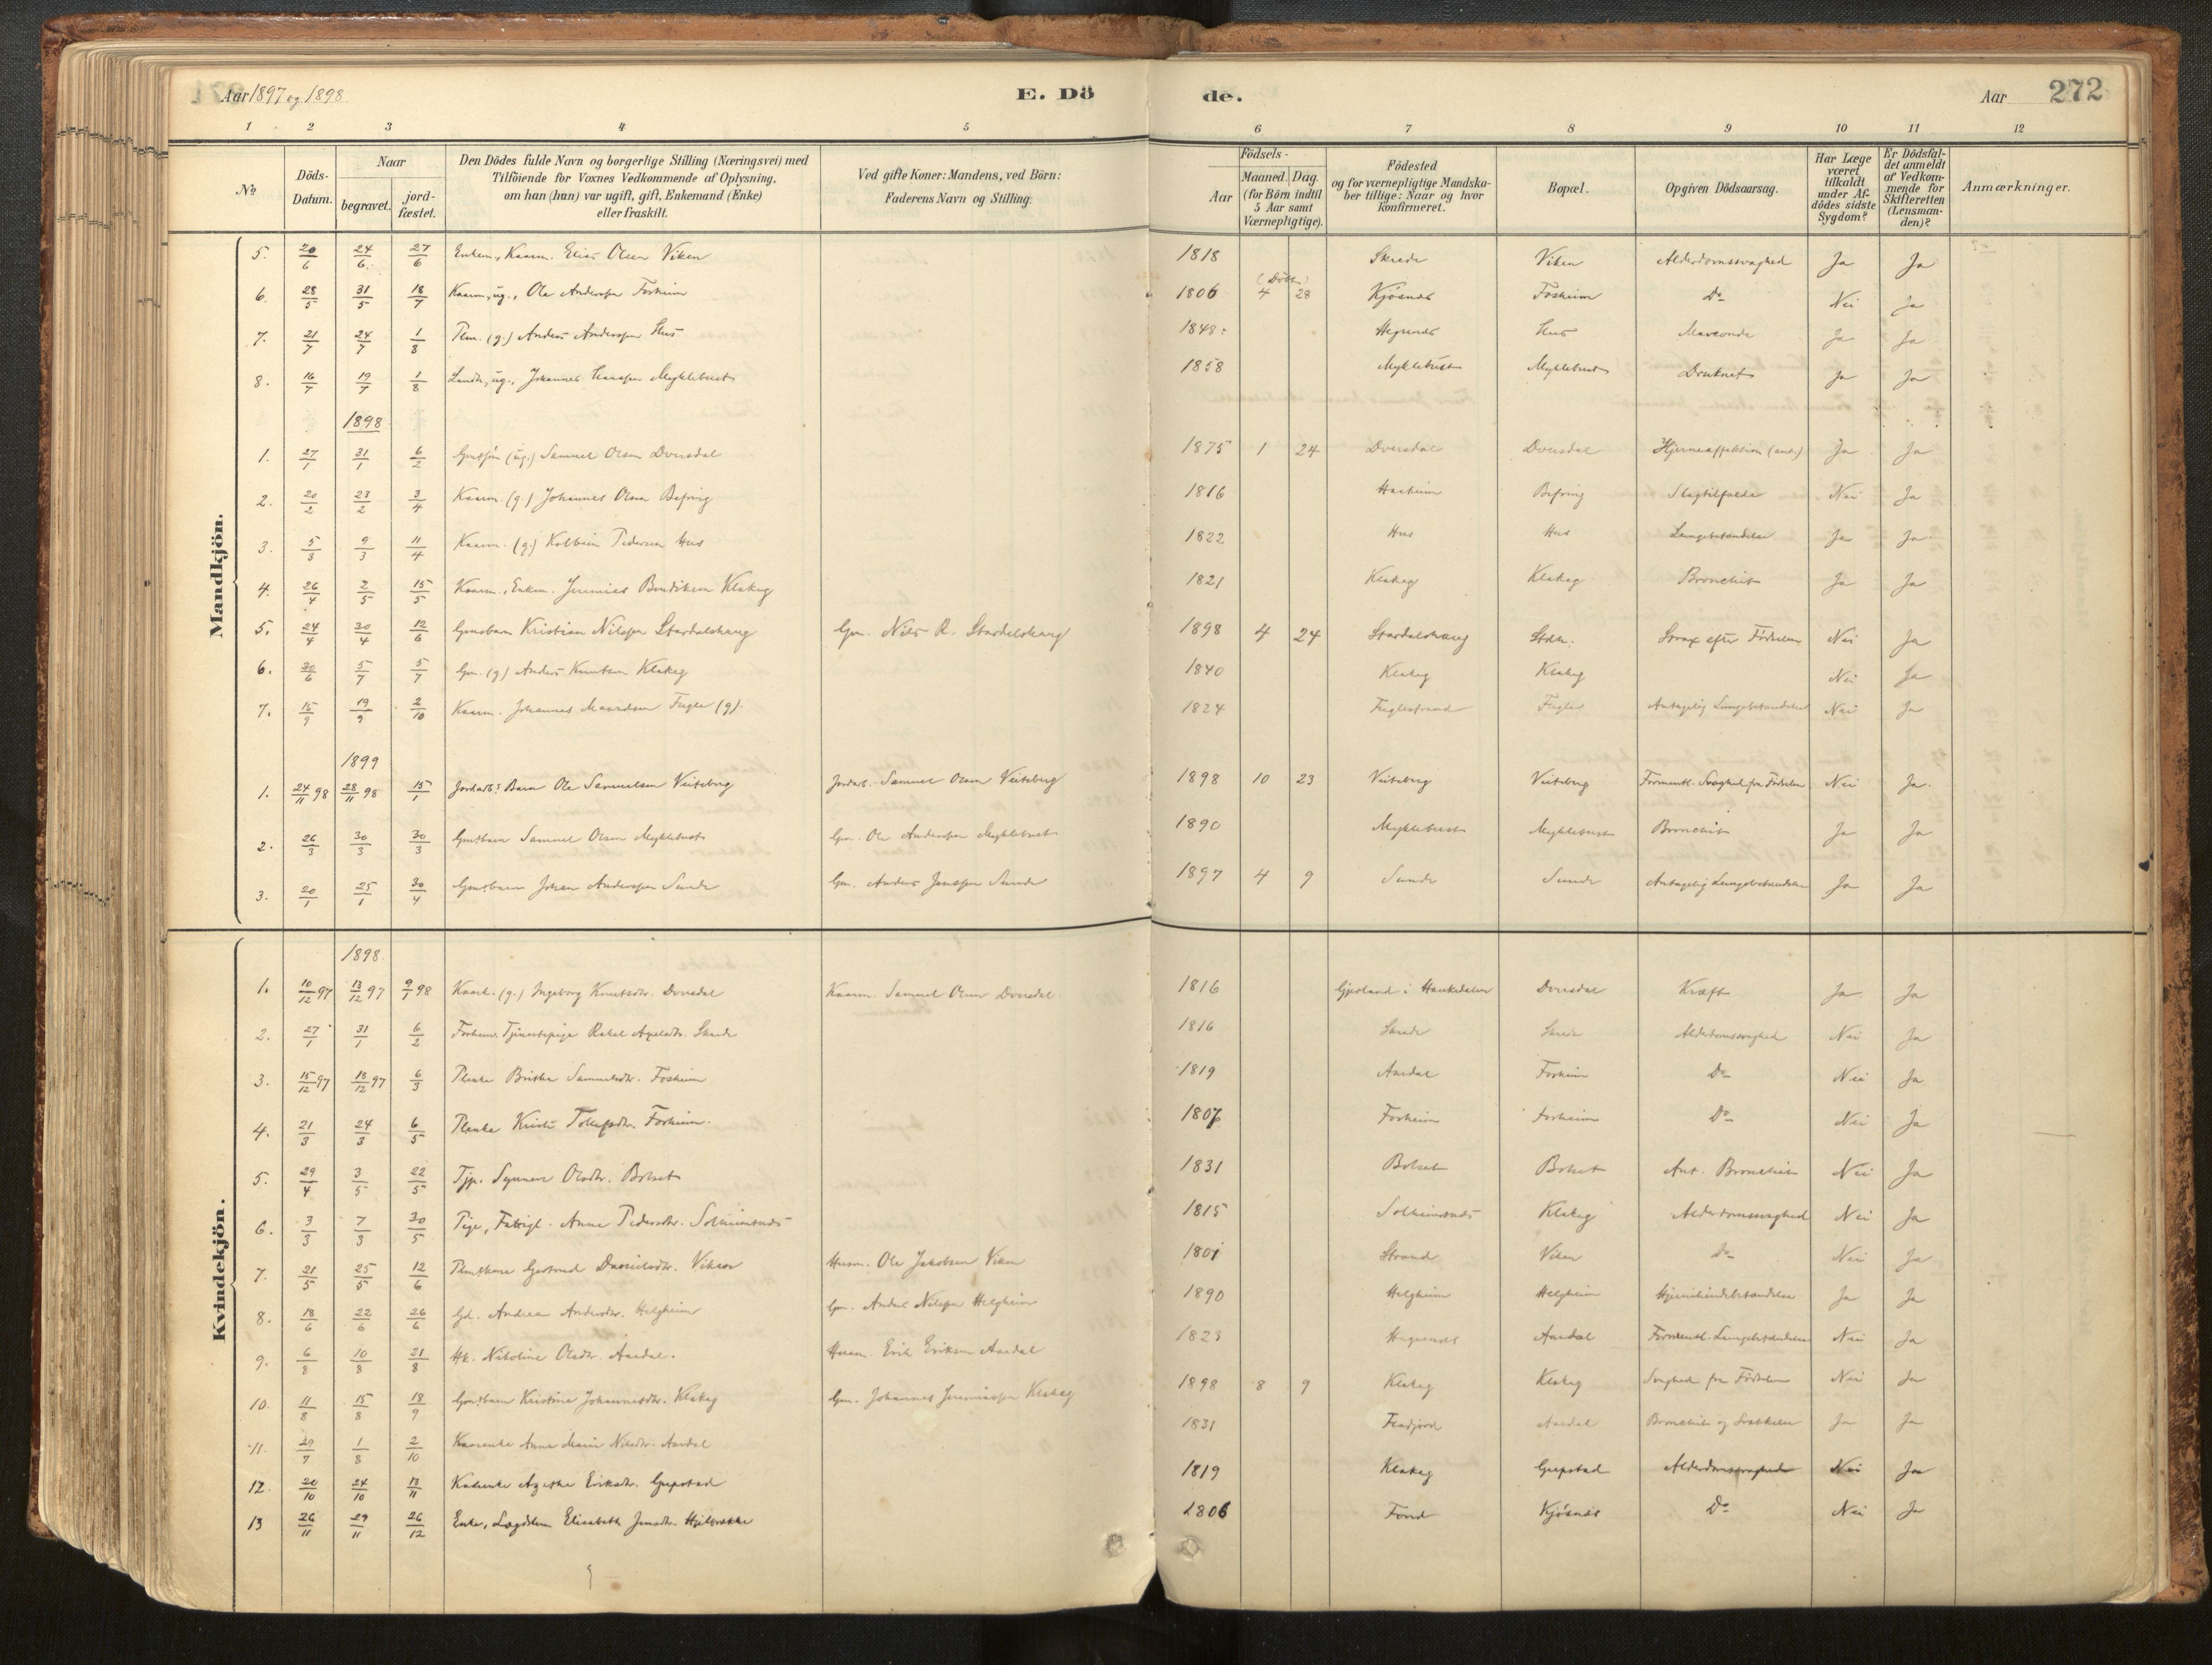 Aar 1897 og 1898.
E. Dö
de.
Aar
272
1 2 3 4 5 6 7 8 9 10 11 12
No
Döds-Datum.
Naar
begravet.
jord-fæstet.
Den Dödes fulde Navn og borgerlige Stilling (Næringsvei) med
Tilföiende for Voxnes Vedkommende af Oplysning,
om han (hun) var ugift, gift, Enkemand (Enke)
eller fraskilt.
Ved gifte Koner: Mandens, ved Börn:
Faderens Navn og Stilling.
Födsels-
Aar
Maaned.
Dag.
(for Börn indtil
5 Aar samt
Værnepligtige).
Födested
og for værnepligtige Mandska-
ber tillige: Naar og hvor
konfirmeret.
Bopæl.
Opgiven Dödsaarsag.
Har Læge
været
tilkaldt
under Af-
dödes sidste
Sygdom?
Er Dödsfal-
det anmeldt
af Vedkom-
mende for
Skifteretten
(Lensman-
den)?
Anmærkninger.
Mandkjön.
5. 20/6 24/6 27/6 Enkem., Kaarm. Elias Olsen Viken 1818 Skrede Viken Alderdomssvaghed Ja Ja
6. 28/5 31/5 18/7 Kaarm., ug., Ole Andersen Fosheim 1806 (Döbt) 4 28 Kjösnes Fosheim Do Nei Ja
7. 21/7 24/7 1/8 Plm. (g.) Anders Anderssen Hus 1848 Hegrenes Hus Ja Ja
8. 16/7 19/7 1/8 ug., Johannes Hanssen Myklebust 1858 Myklebust Myklebust Druknet Ja Ja
1898
1. 27/1 31/1 6/2 Gmssön (ug.) Samuel Olsen Dvergsdal 1875 1 24 Dvergsdal Dvergsdal Hjerneaffektion (ant.) Ja Ja
2. 20/2 23/2 3/4 Kaarm. (g.) Johannes Olsen Befring 1816 Befring Slagtilfælde Nei Ja
3. 5/3 9/3 11/4 Kaarm. (g.) Kolbein Pedersen Hus 1822 Hus Hus Lungebetændelse Ja Ja
4. 26/4 2/5 15/5 Kaarm., Enkem. Jeremias Bendiksen Klakeg 1821 Klakeg Klakeg Bronchit Ja Ja
5. 24/4 30/4 12/6 Gmsbarn Kristian Nilssen Stardalshaug Gm. Nils R. Stardalshaug 1898 4 24 Stardalshaug Stdh. Strax efter Födselen Nei Ja
6. 30/6 5/7 5/7 Gm. (g) Anders Knutsen Klakeg 1840 Klakeg Klakeg Nei Ja
7. 15/9 19/9 2/10 Kaarm. Johannes Maardsen Fugle (g). 1824 Fuglestrand Fugle Antagelig Lungebetændelse Nei Ja
1899
1. 24/11 98 28/11 98 15/1 Barn Ole Samuelsen Veiteberg Samuel Olsen Veiteberg 1898 10 23 Veiteberg Veiteberg Formentl. Svaghed fra Födselen Nei Ja.
2. 26/3 30/3 30/3 Gmsbarn Samuel Olsen Myklebust Gm. Ole Anderssen Myklebust 1890 Myklebust Myklebust Bronchit Ja Ja
3. 20/1 25/1 30/4 Gmsbarn Johan Anderssen Sunde Gm. Anders Janssen Sunde 1897 4 9 Sunde Sunde Antagelig Lungebetændelse Ja Ja
Kvindekjön.
1898
1. 10/12 97 13/12 97 9/1 98 Kaark. (g.) Ingeborg Knutsdtr. Dvergsdal Kaarm. Samuel Olsen Dvergsdal. 1816 Gjesland i Haukedalen Dvergsdal Kræft Ja Ja
2. 27/1 31/1 6/2 Forhenv. Tjenestepige Rakel Axelsdtr. Skrede 1816 Skrede Skrede Alderdomssvaghed Nei Ja
3. 15/12 97 18/12 97 6/3 Plenke Brithe Samuelsdtr. Fosheim 1819 Aardal Fosheim Do Nei Ja
4. 21/3 24/3 6/5 Plenke Kristi Tollefsdtr. Fosheim. 1807 Fosheim Fosheim Do Nei Ja
5. 29/4 3/5 22/5 Tjp. Synneve Olsdtr. Bolset 1831 Bolset Bolset Ant. Bronchit Nei Ja
6. 3/3 7/3 30/5 Pige, Fattigl. Anna Pedersdtr. Solheimsnes 1815 Solheimsnes Klakeg Alderdomssvaghed Nei Ja
7. 21/5 25/5 12/6 Plmskone Gjertrud Danielsdtr. Viken Husm. Ole Jakobsen Viken 1801 Strand Viken Do Nei Ja
8. 18/6 22/6 26/6 Gd. Andrea Andersdtr. Helgheim Gm. Anders Nilssen Helgheim 1890 Helgheim Helgheim Hjernehindebetændelse Ja Ja
9. 6/8 10/8 21/8 Hk. Nikoline Olsdtr. Aardal. Husm. Erik Eriksen Aardal 1823 Hegrenes Aardal Formentl. Lungebetændelse Nei Ja
10. 11/8 15/8 18/9 Gmsbarn Kristine Johannesdtr. Klakeg Gm. Johannes Jeremiassen Klakeg 1898 8 9 Klakeg Klakeg Svaghed fra Födselen Nei Ja
11. 29/7 1/8 2/10 Kaarenke Anne Marie Nilsdtr. Aardal 1831 Aardal Bronchit og Ja Ja
12. 20/10 24/10 13/11 Kaarenke Agathe Eriksdtr. Gjepstad 1819 Klakeg Gjepstad Alderdomssvaghed Nei Ja
13 26/11 29/11 26/12 Enke, Lægdslem Elisabeth Jensdtr. 1806 Fond Kjösnes Do Nei Ja